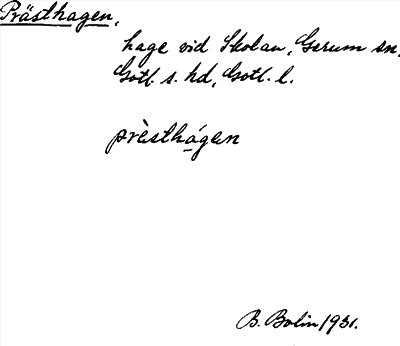 Prästhagen,
hage vid Skolan, Gerum sn,
Gotl. s. hd, Gotl. l.
prèsthágen
B. Bolin 1931.